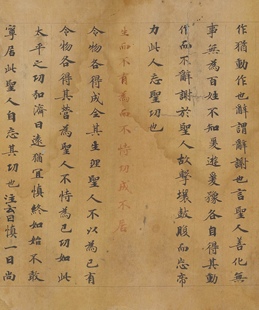 作猶動作也辭謂辭謝也言聖人善化無
事無為百姓不知爰遊爰豫各自得其動
作而不辭謝於聖人故擊壤鼓腹而忘帝
力此人忘聖功也
生而不有為而不恃功成不居
令物各得成全其生理聖人不以為己有
令物各得其營為聖人不恃為己功如此
太平之功和濟日遠猶宜慎終如始不敢
寧居此聖人自忘其功也注云日慎一日尚